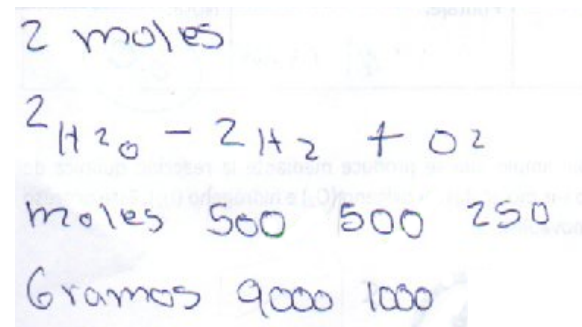 2 moles
2H2O - 2H2 + O2
moles 500 500 250
Gramos 9000 1000